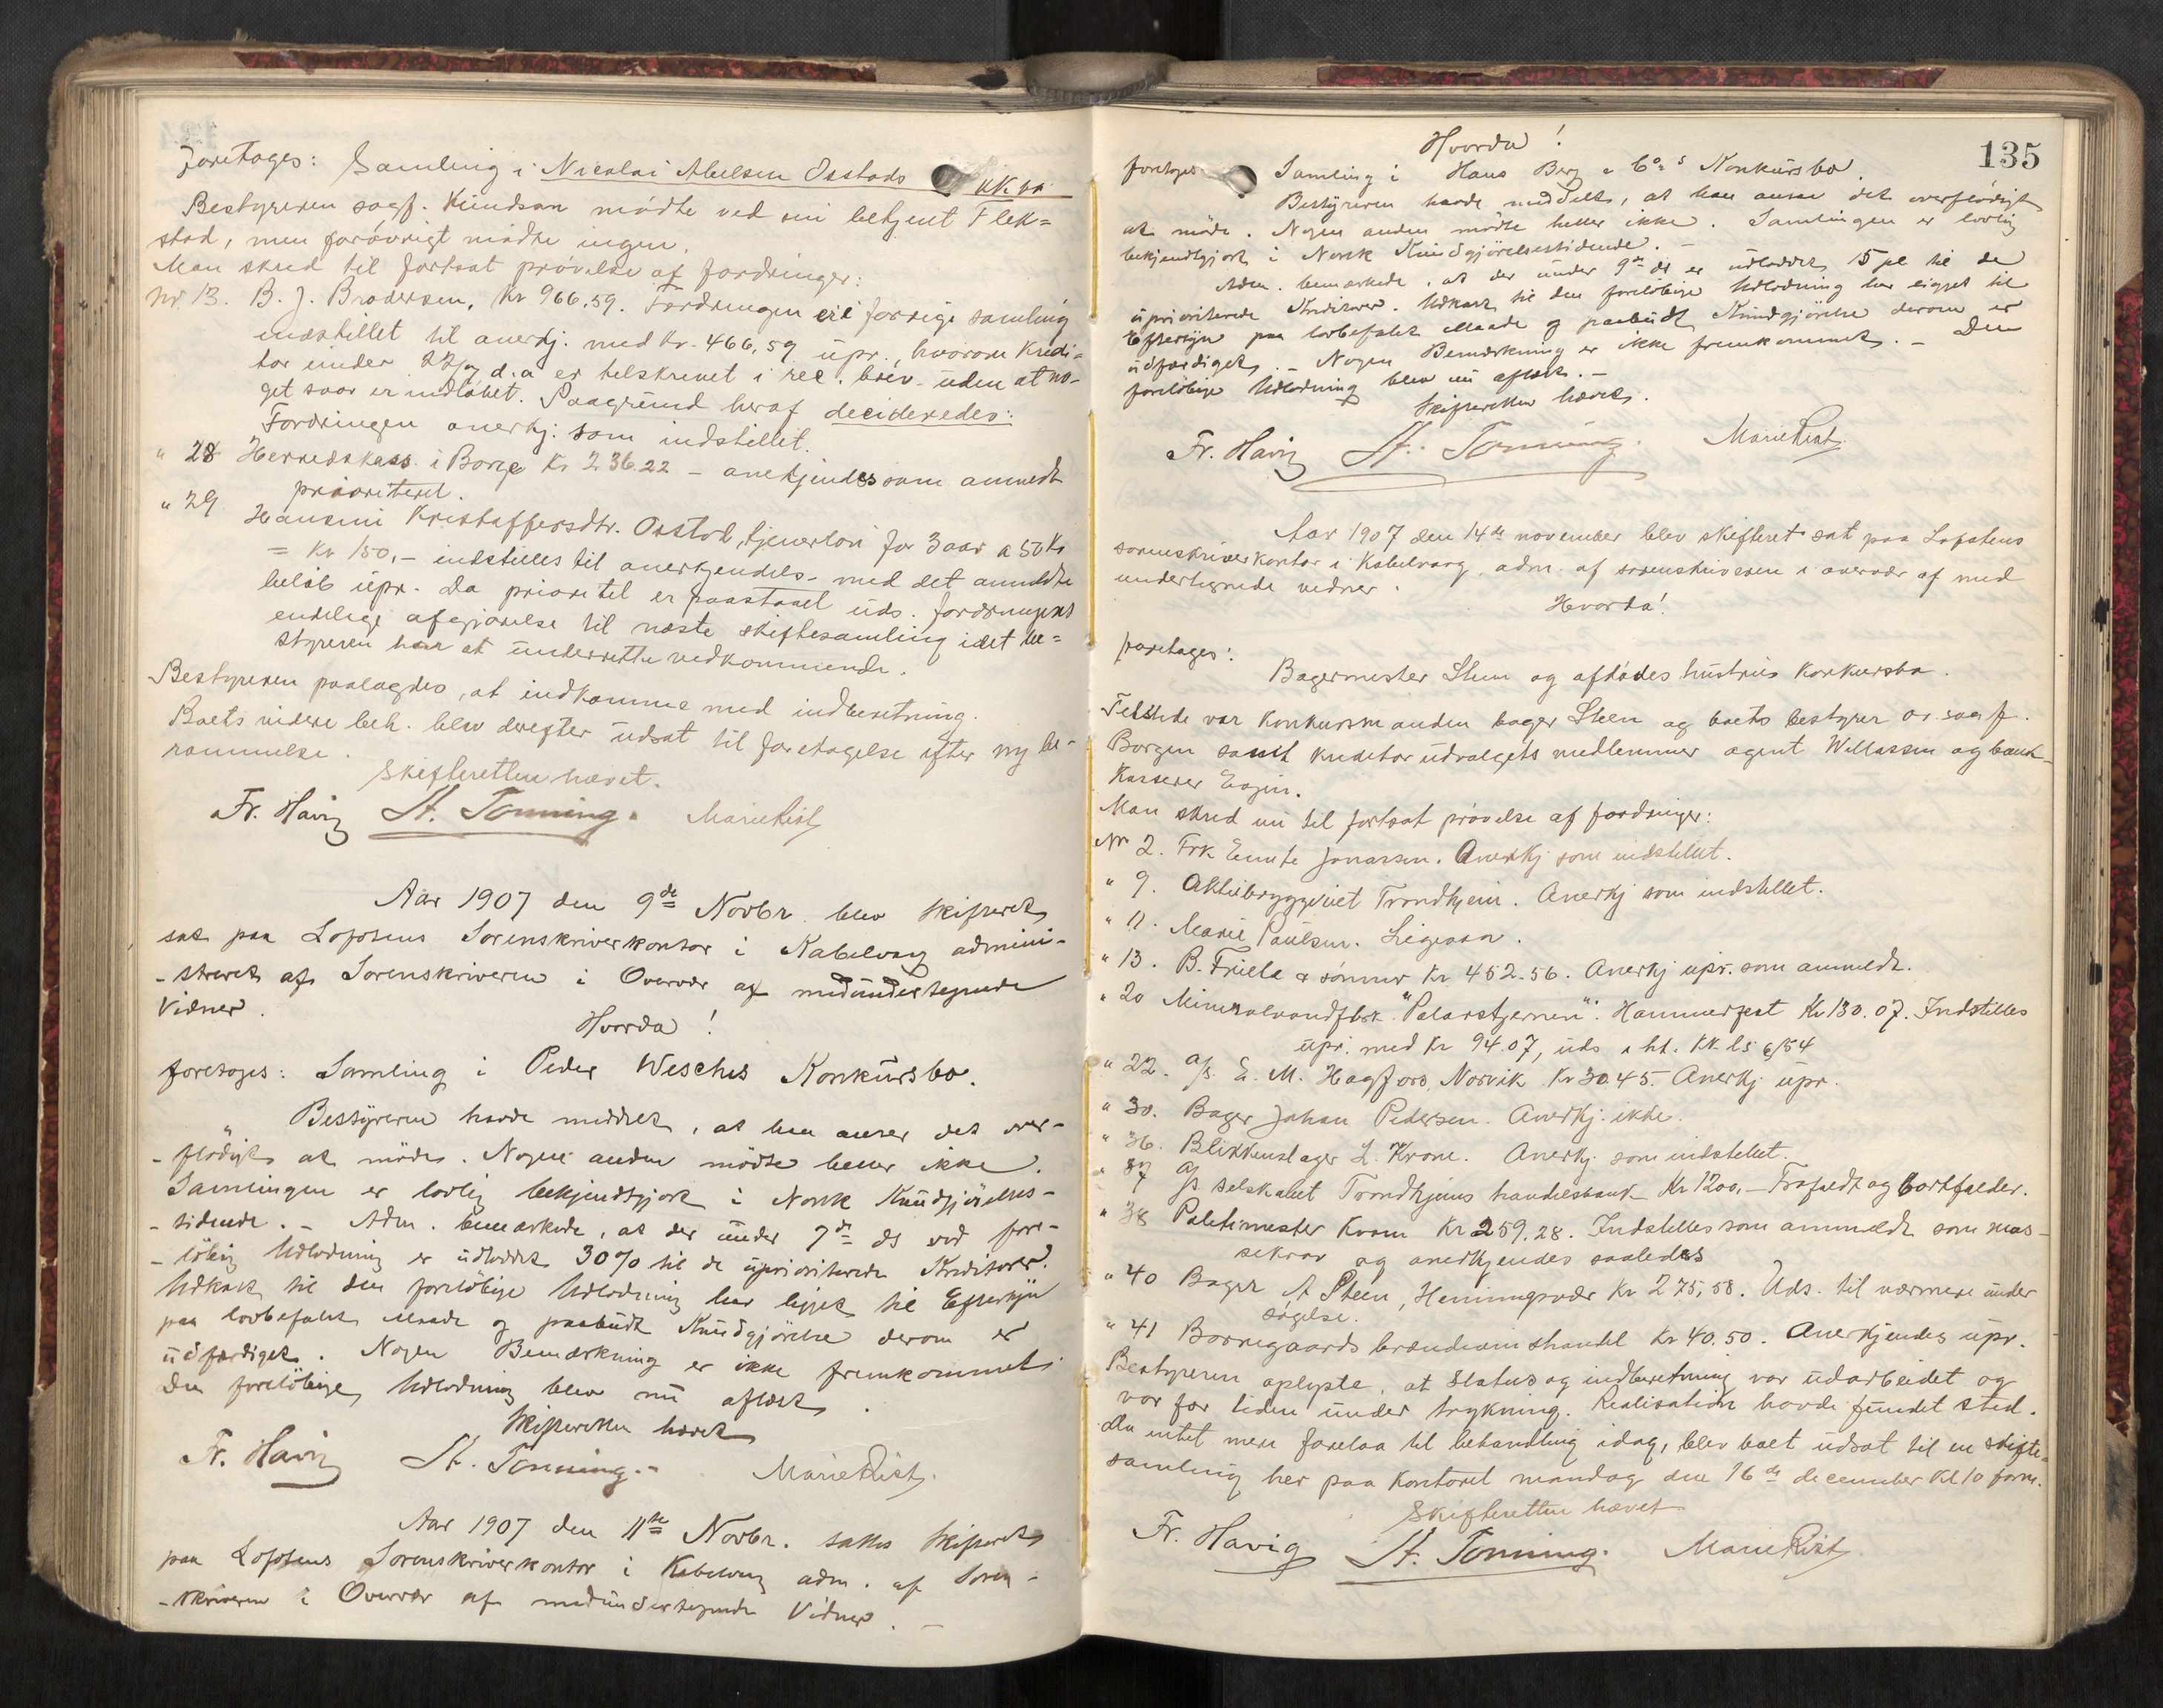 foretages: Samling i Nicolai Abelsen Osstads kk. bo
Bestyreren sagf. Knudsen mødte ved sin betjent Flek=
stad, men forøvrigt mødte ingen.
Man skred til fortsat prøvelse af fordringer:
Nr. 13. B. J. Brodersen, Kr 966.59. Fordringen er i forrige samling
indstillet til anerkj. med Kr. 466,59 upr., hvorom Kredi=
tor under 22/7 d.a er tilskrevet i rec. brev uden at no-
get svar er indløbet. Paagrund heraf decideredes:
Fordringen anerkj. som indstillet.
" 28 Herredskass. i Borge Kr 236.22 – anerkjendes som anmeldt
prioriteret.
" 29 Hansine Kristoffersdtr. Osstad, tjenerløn for 3 aar a 50 Kr
= Kr 150,– indstilles til anerkjendels- med det anmeldte
beløb upr. Da prioritet er paastaaet uds. fordringens
endelige afgjørelse til næste skiftesamling idet be=
styreren har at underrette vedkommende.
Bestyreren paalagdes, at indkomme med indberetning.
Boets videre beh. blev derefter udsat til foretagelse efter ny be-
rammelse.
Skifteretten hævet.
Fr. Havig St. Tonning. Marie Rist
Aar 1907 den 9de Novbr. blev Skifteret
sat paa Lofotens Sorenskriverkontor i Kabelvaag admini-
-streret af Sorenskriveren i Overvær af medundertegnede
Vidner.
Hvorda!
foretages: Samling i Peder Weschs Konkursbo.
Bestyreren havde meddelt, at han anser det over-
-flødigt at møde. Nogen anden mødte heller ikke.
Samlingen er lovlig bekjendtgjort i Norsk Kundgjørelses-
-tidende. – Adm. bemærkede, at der under 7de ds ved fore-
-løbig Udlodning er udloddet 30% til de uprioriterede Kreditorer.
Udkast til den foreløbige Udlodning har ligget til Eftersyn
paa lovbefalet Maade og paabudt Kundgjørelse derom er
udfærdiget. Nogen Bemærkning er ikke fremkommet.
Den foreløbige Udlodning blev nu aflæst.
Skifteretten hævet
Fr. Havig St. Tonning.- Marie Rist.
Aar 1907 den 11te Novbr. sattes Skifteret
paa Lofotens Sorenskriverkontor i Kabelvaag adm. af Soren-
-skriveren i Overvær af medundertegnede Vidner. –
135
Hvorda!
foretages Samling i Hans Berg & Co's Konkursbo.
Bestyreren havde meddelt, at han anser det overflødigt
at møde. Nogen anden mødte heller ikke. Samlingen er lovlig
bekjendtgjort i Norsk Kundgjørelsestidende. –
Adm. bemærkede, at der under 9de ds er udloddet 15 pc til de
uprioriterede Kreditorer. Udkast til den foreløbige Udlodning har ligget til
Eftersyn paa lovbefalet Maade og paabudt Kundgjørelse derom er
udfærdiget. – Nogen Bemærkning er ikke fremkommet. – Den
foreløbige Udlodning blev nu aflæst. –
Skifteretten hævet.
Fr. Havig St. Tonning. Marie Rist.
Aar 1907 den 14de november blev skifteret sat paa Lofotens
sorenskriverkontor i Kabelvaag, adm. af sorenskriveren i overvær af med
undertegnede vidner.
Hvorda!
foretages:
Bagermester Steen og afdødes hustrus konkursbo.
Tilstede var konkursmanden bager Steen og boets bestyrer o.r. sagf.
Borgen samt kreditorudvalgets medlemmer agent Willassen og bank-
kasserer
Man skred nu til fortsat prøvelse af fordringer:
Nr 2. Frk Jonassen. Anerkj som indstillet.
" 9. Aktiebryggeriet Trondhjem. Anerkj som indstillet.
" 11. Marie Paulsen. Ligesaa.
" 13. B. Friele & sønner Kr 452.56. Anerkj upr. som anmeldt.
" 20 Mineralvandfbrk. "Polarstjernen". Hammerfest Kr 130.07. Indstilles
upr. med Kr 94.07, uds i ht. KK. ls § 54
" 22. A/S. E. M. Hagfors, Narvik Kr 30.45. Anerkj upr.
" 30. Bager Johan Pedersen. Anerkj. ikke.
" 36. Blikkenslager L. Krane. Anerkj. som indstillet.
" 37 A/S selskabet Trondhjems handelsbank Kr 1200,– Frafaldt og bortfalder.
" 38 Politimester Kvam Kr 259.28. Indstilles som anmeldt som mas-
sekrav og anerkjendes saaledes
" 40 Bager A Steen, Henningsvær Kr 275,58. Uds. til nærmere under
søgelse.
" 41 Borregaards brændevinshandel Kr 40.50. Anerkjendes upr.
Bestyreren oplyste, at status og indberetning var udarbeidet og
var for tiden under trykning. Realisation havde fundet sted.
Da intet mere forelaa til behandling idag, blev boet udsat til en skifte-
samling her paa kontoret mandag den 16de december kl 10 form.
Skifteretten hævet
Fr. Havig St. Tonning. Marie Rist.